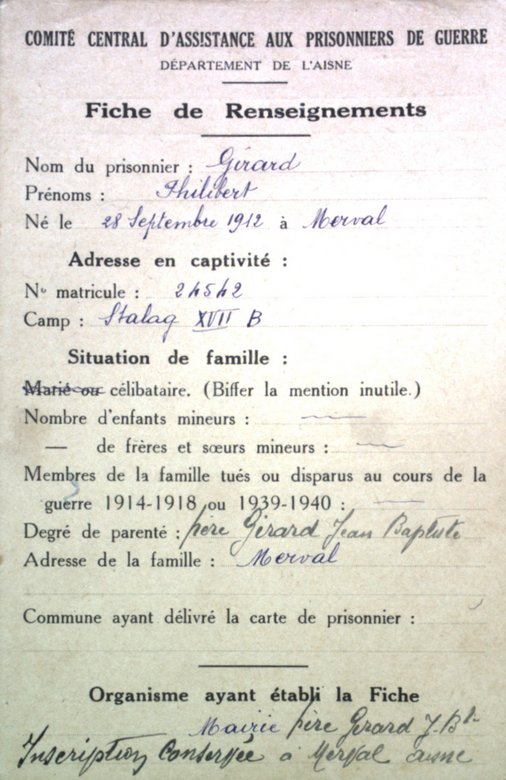 COMITÉ CENTRAL D'ASSISTANCE AUX PRISONNIERS DE GUERRE
DÉPARTEMENT DE L'AISNE
Fiche de Renseignements
Nom du prisonnier : Gérard
Prénoms : Philibert
Né le 28 Septembre 1912 à Merval
Adresse en captivité :
No matricule : 24542
Camp : Stalag XVII B
Situation de famille :
Marié ou célibataire. (Biffer la mention inutile.)
Nombre d'enfants mineurs : —
— de frères et sœurs mineurs : —
Membres de la famille tués ou disparus au cours de la
guerre 1914-1918 ou 1939-1940 : —
Degré de parenté : père Gérard Jean Baptiste
Adresse de la famille : Merval
Commune ayant délivré la carte de prisonnier :
Organisme ayant établi la Fiche
Mairie père Gerard J-Bte
Inscription Conservée à Merval aisne